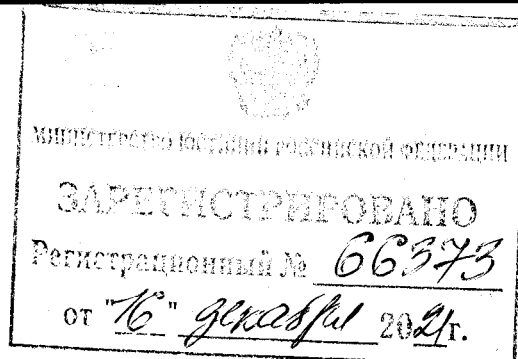 МИНИСТЕРСТВО ЮСТИЦИИ РОССИЙСКОЙ ФЕДЕРАЦИИ
ЗАРЕГИСТРИРОВАНО
Регистрационный № 66373
от "16" декабря 2021г.